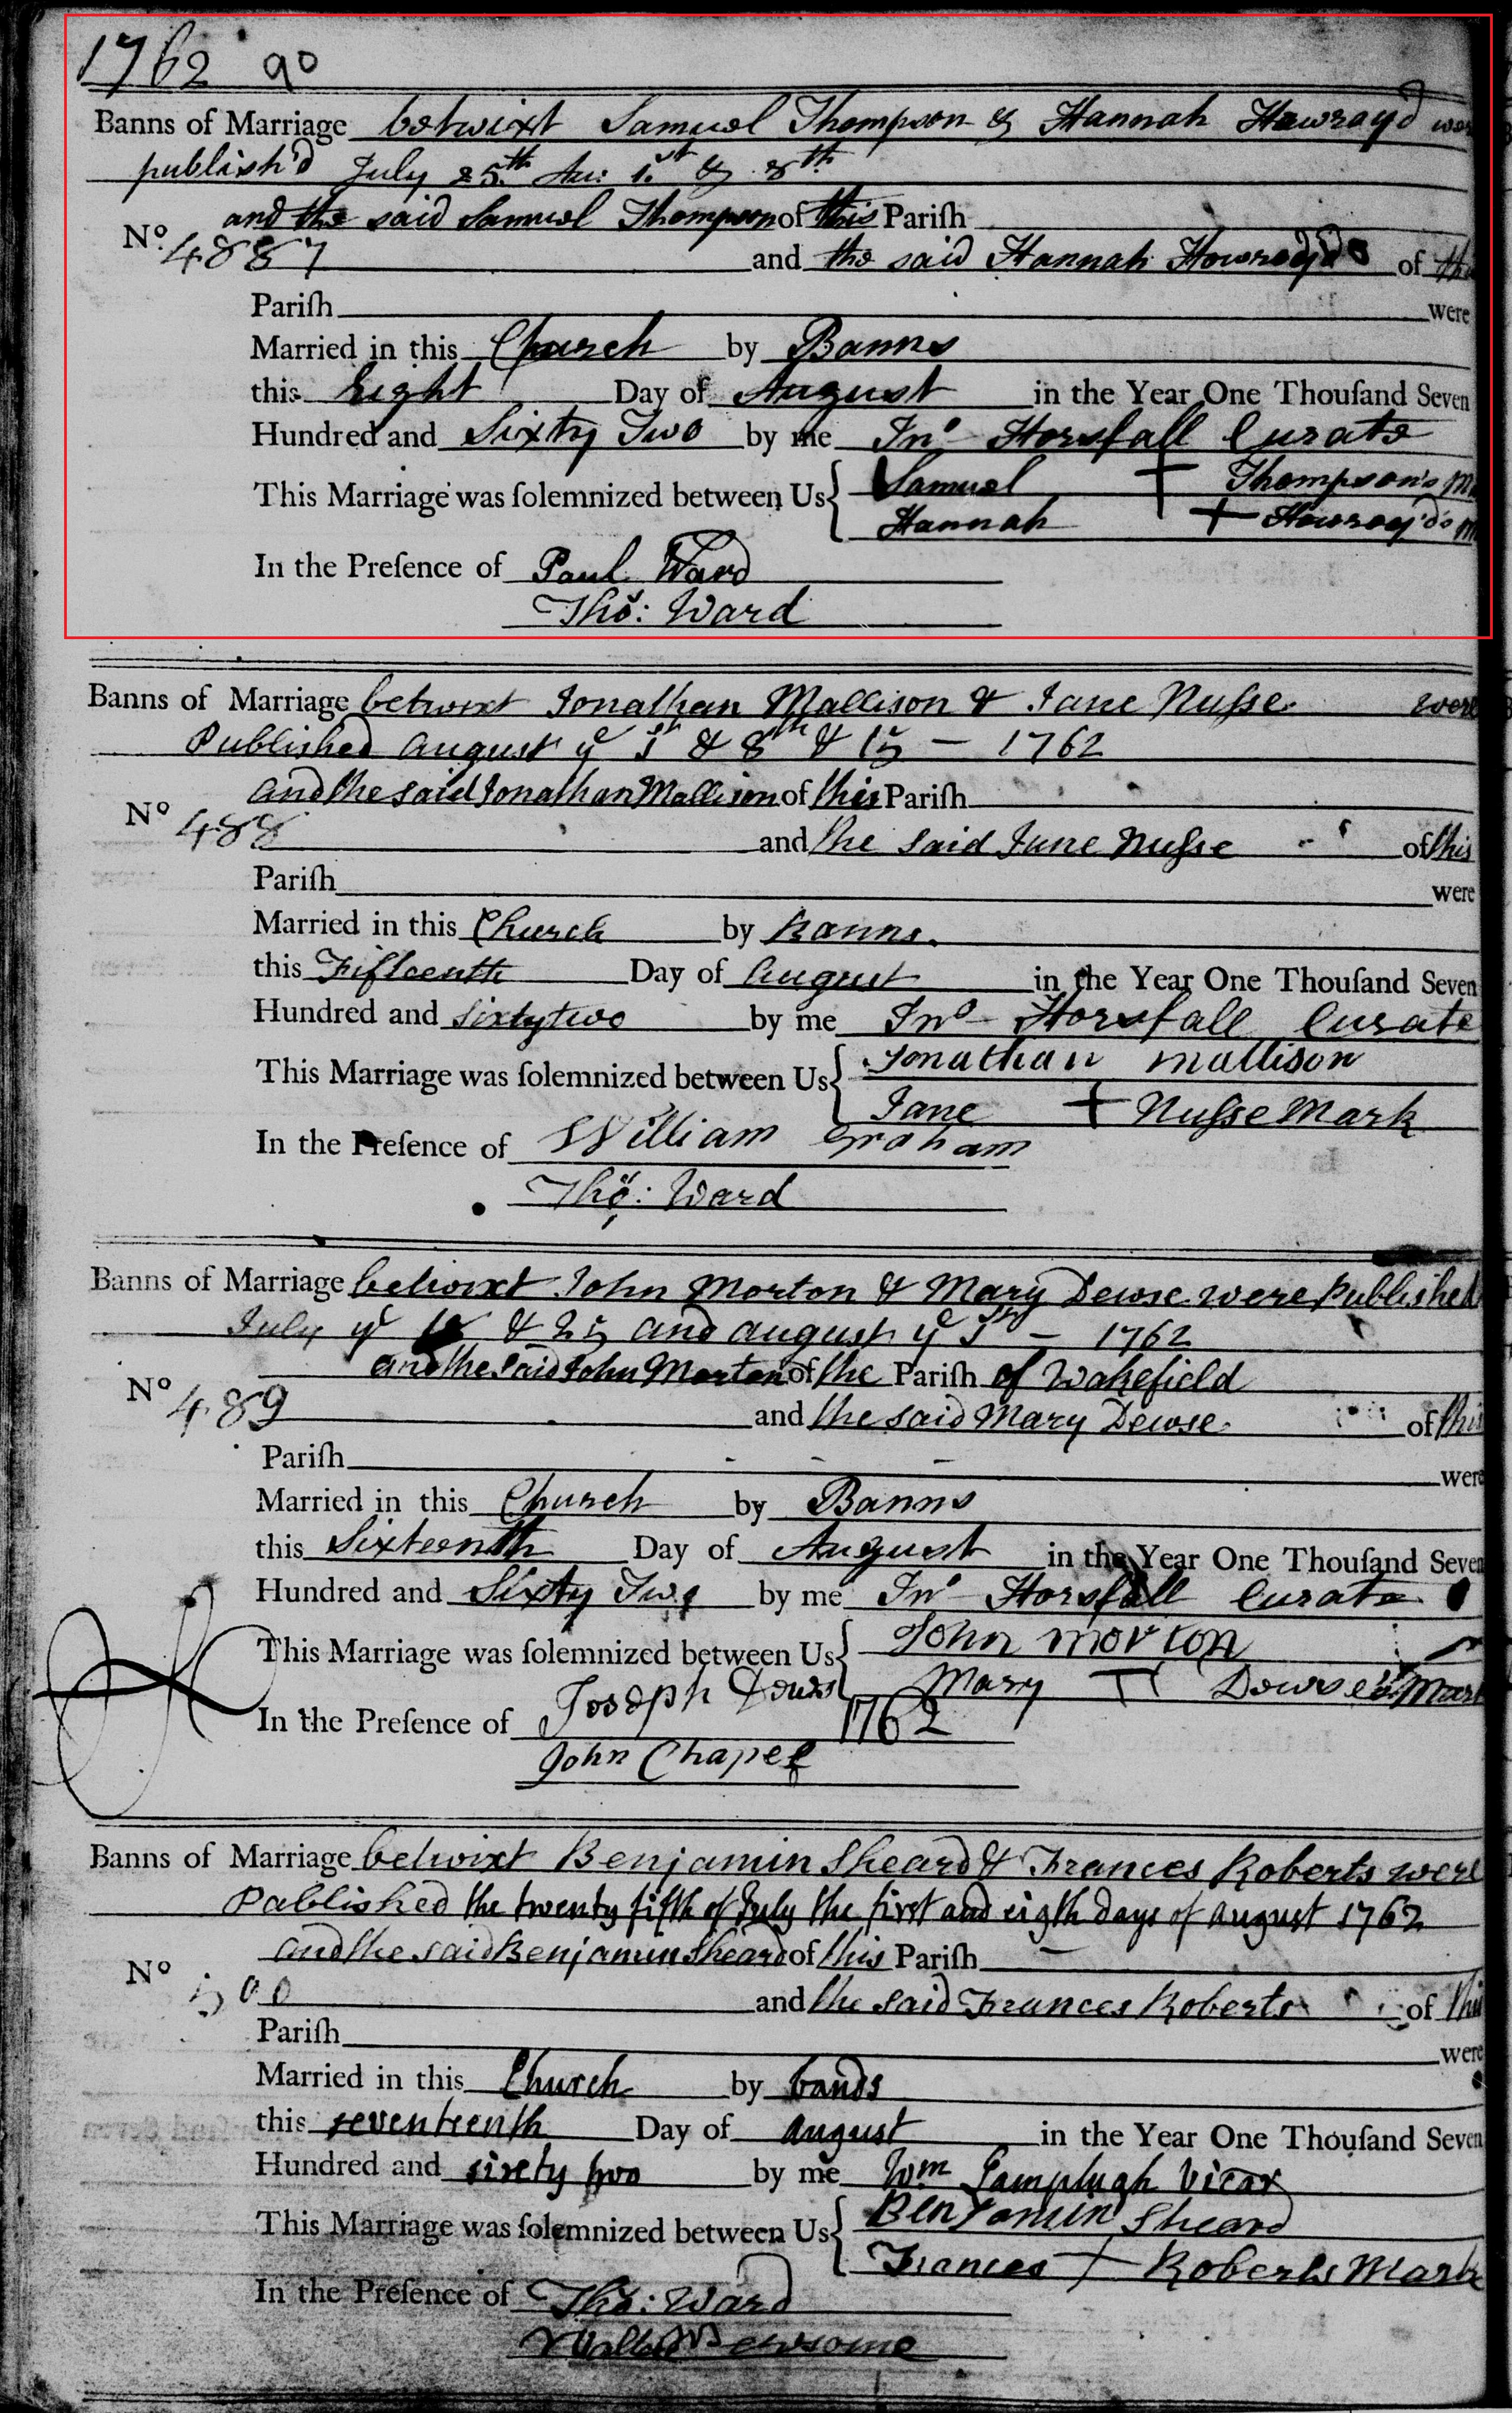 1762 90
Banns of Marriage betwixt Samuel Thompson & Hannah Howrayd wer
publish'd July 25th Au: 1st & 8th
and the said Samuel Thompson of this Pariſh
No. 4887
and the said Hannah Howroyd of th
Pariſh were
Married in this Church by Banns
this Eight Day of August in the Year One Thouſand Seven
Hundred and Sixty Two by me Jno Horsfall Curate
This Marriage was ſolemnized between Us Samuel + Thompson's M
Hannah + Howroyd's M
In the Preſence of Paul Ward
Tho: Ward
Banns of Marriage betwixt Jonathan Mallison & Jane Nuſse were
Published august ye 1st & 8th & 15 — 1762
and the said Jonathan Mallison of this Pariſh
No 488
and the said Jane Nuſse of this
Pariſh were
Married in this Church by Banns.
this Fifteenth Day of August in the Year One Thouſand Seven
Hundred and sixty two by me Jno Horsfall Curate
This Marriage was ſolemnized between Us Jonathan mallison
Jane + Nuſse Mark
In the Preſence of William Graham
Tho: Ward
Banns of Marriage betwixt John Morton & Mary Dewse were Published
July ye 18 & 25 and august ye 1st — 1762
and the said John Morton of the Pariſh of Wakefield
No 489
and the said Mary Dewse of this
Pariſh were
Married in this Church by Banns
this Sixteenth Day of August in the Year One Thouſand Seven
Hundred and Sixty Two by me Jno Horsfall Curate
This Marriage was ſolemnized between Us John morton
Mary Dewse's Mark
In the Preſence of Joseph Dews 1762
John Chapel
Banns of Marriage betwixt Benjamin Sheard & Frances Roberts were
Published the twenty fifth of July the first and eigth days of august 1762
and the said Benjamin Sheard of this Pariſh
No 500
and the said Frances Roberts of this
Pariſh were
Married in this Church by bands
this seventeenth Day of august in the Year One Thouſand Seven
Hundred and sixty two by me Wm Lamplugh Vicar
This Marriage was ſolemnized between Us Benjamin Sheard
Frances + Roberts Mark
In the Preſence of Tho: Ward
Newsome